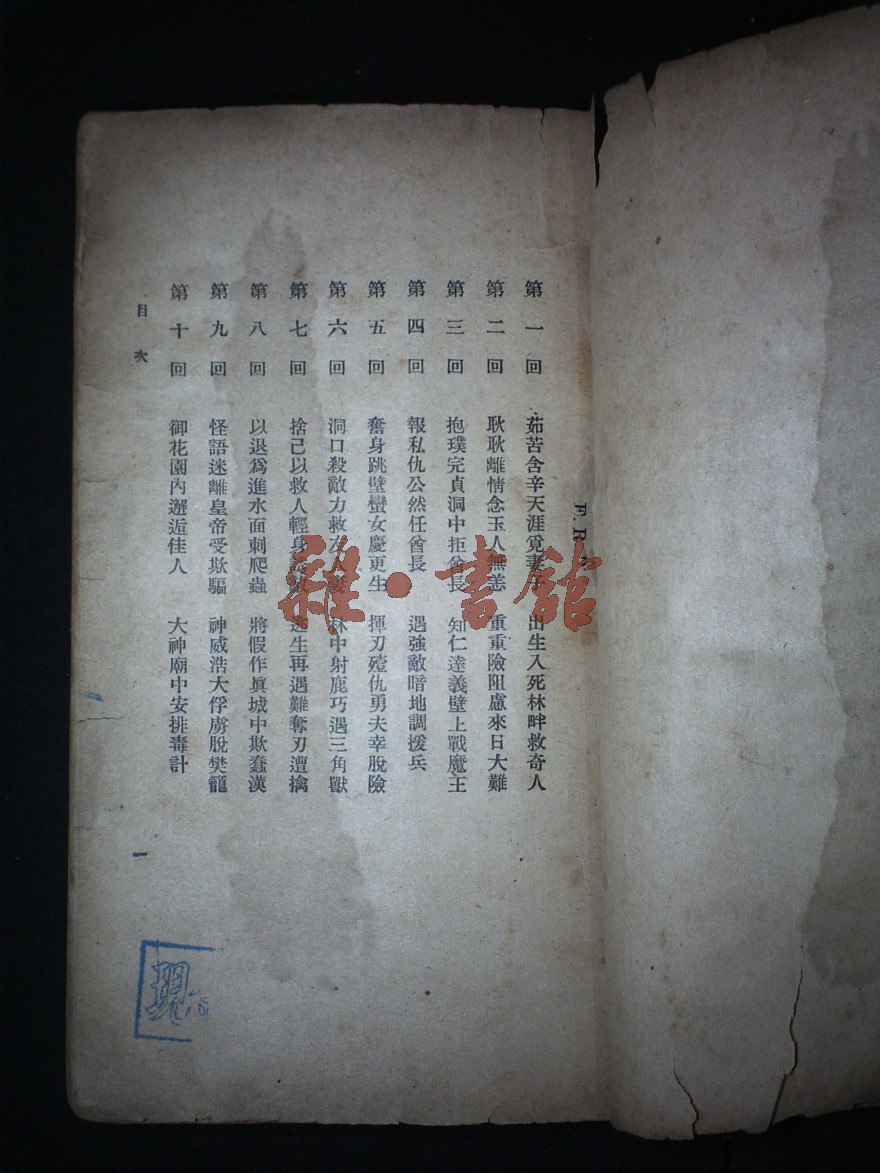 第一回 茹苦含辛天涯覓妻子 出生入死林畔救奇人
第二回 耿耿離情念玉人無恙 重重險阻慮來日大難
第三回 抱璞完貞洞中拒酋長 知仁達義壁上戰魔王
第四回 報私仇公然任酋長 遇強敵暗地調援兵
第五回 奮身跳壁蠻女慶更生 揮刃殪仇勇夫幸脫險
第六回 洞口殺敵力救友人妻 林中射鹿巧遇三角獸
第七回 捨己以救人輕身 逃生再遇難奪刃遭擒
第八回 以退爲進水面刺爬蟲 將假作眞城中欺蠢漢
第九回 怪語迷離皇帝受欺騙 神威浩大俘虜脫樊籠
第十回 御花園內邂逅佳人 大神廟中安排毒計
目次
一
雜·書館